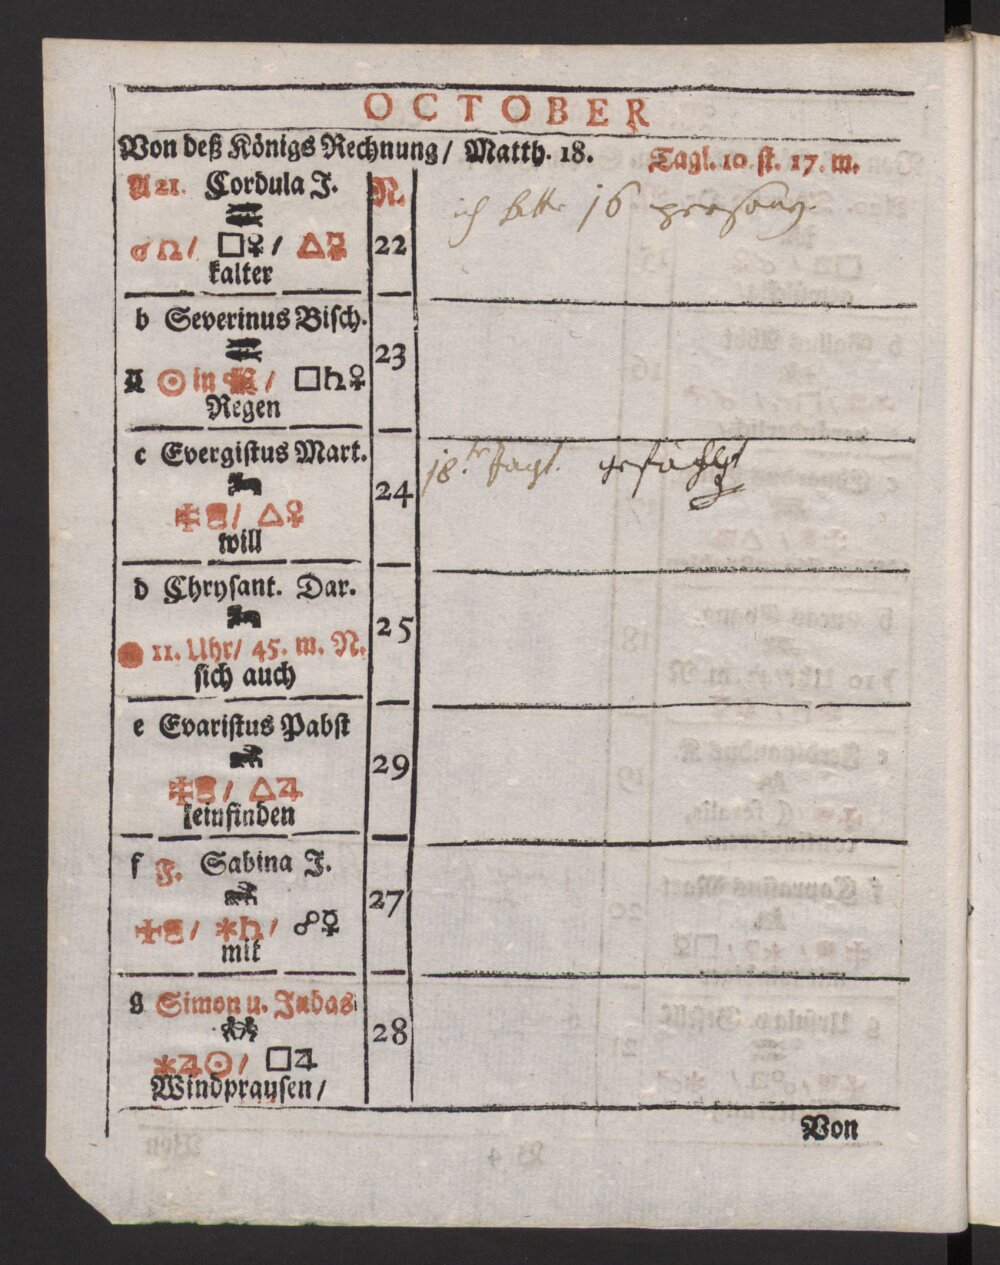 OCTOBER
Von deß Königs Rechnung/ Matth. 18. Tagl. 10. st. 17. m.
A 21. Cordula J. N.
♂☊/ □♀/ △☿ 22
kalter
b Severinus Bisch.
23
☉ in ♏/ □♄♀
Regen
c Evergistus Mart.
18.te Jagt.
24
/ △♀
will
d Chrysant. Dar.
25
11. Uhr/ 45. m. N.
sich auch
e Evaristus Pabst
29
/ △♃
einfinden
f F. Sabina J.
27
/ ✶♄/ ☍☿
mit
g Simon u. Judas
28
✶♃☉/ □♃
Windprausen/
Von
ich hette 16